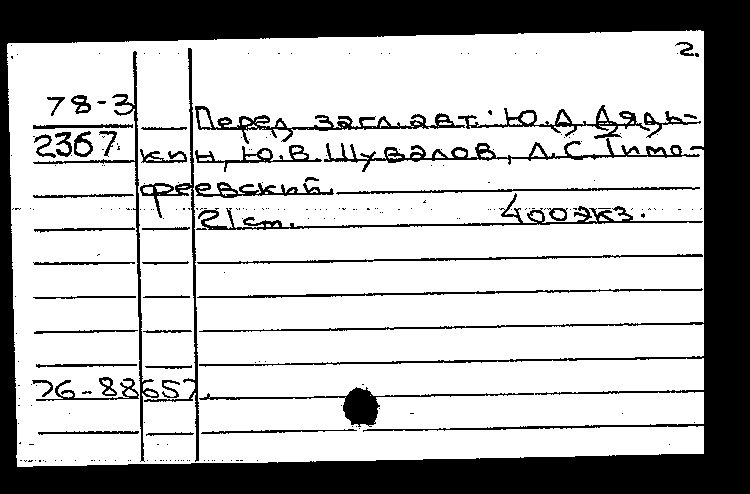 2.
78-3 Перед загл. авт.: Ю.Д. Дядь-
2367 кин, Ю.В. Шувалов, Л.С. Тимо-
феевский.
21 cm. 400 экз.
76-88657.